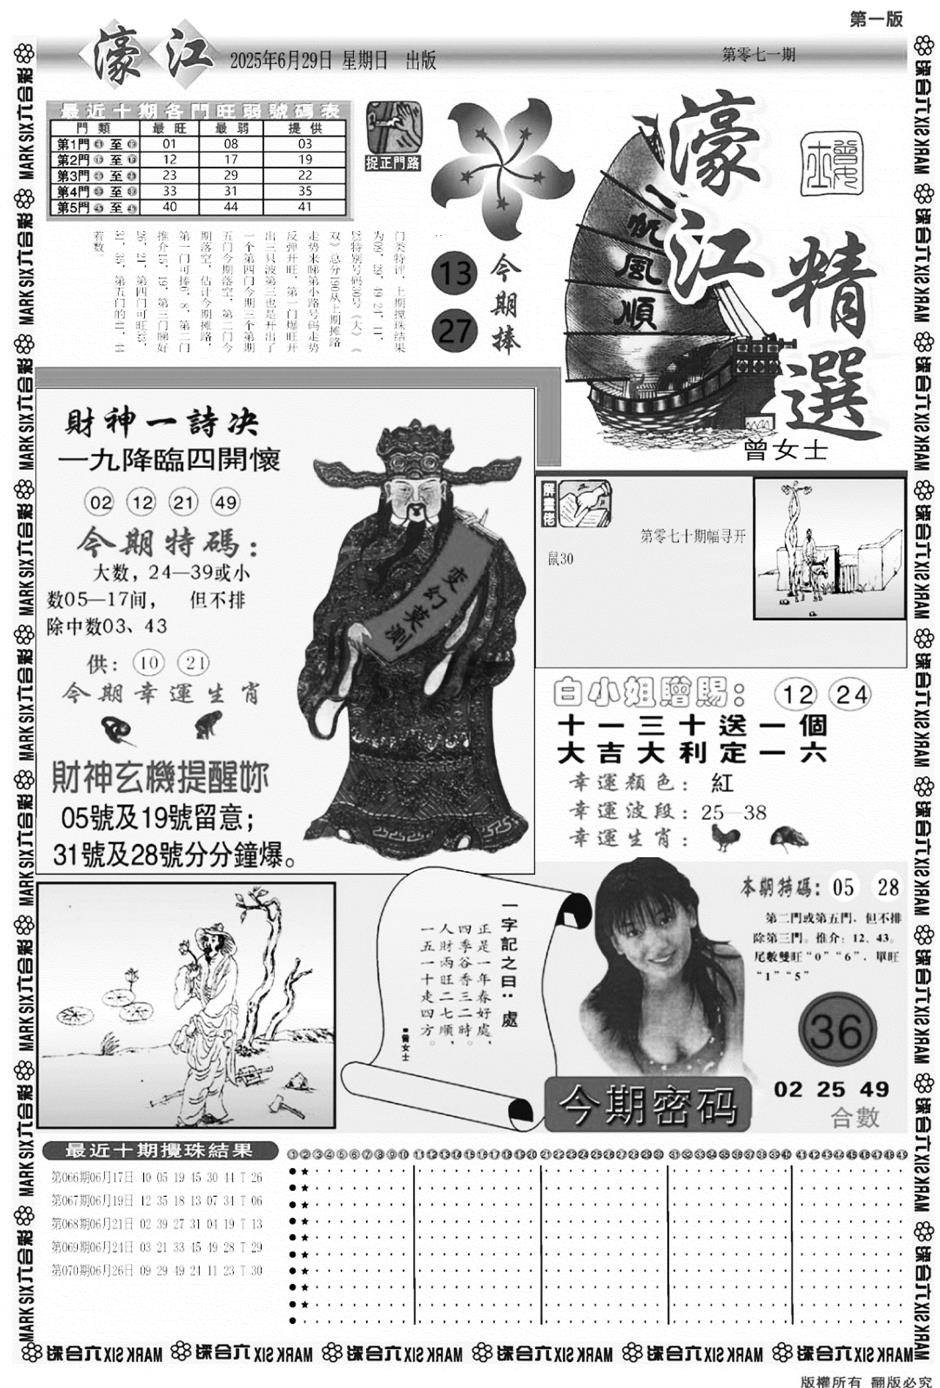 第一版
濠江
2025年6月29日 星期日 出版
第零七一期
最近十期各門旺弱號碼表
門類 最旺 最弱 提供
第1門 至 01 08 03
第2門 至 12 17 19
第3門 至 23 29 22
第4門 至 33 31 35
第5門 至 40 44 41
捉正門路
13
27
今期捧
濠江
精選
一帆風順
曾女士
门类特评，上期攪珠结果
走势来睇第小路号码走势
反弹开旺，第一门爆旺开
出三只波第三也是开出了
一个第四门今期三个第期
五门今期落空，第二门今
期落空，估计今期摊路，
第一门可捧6，8，第二门
推介16，19，第三门睇好
26，21，第四门可旺33，
31，35，第五门的41，44
着数。
財神一詩决
一九降臨四開懷
02 12 21 49
今期特碼：
大数，24—39或小
数05—17间， 但不排
除中数03、43
供：10 21
今期幸運生肖
財神玄機提醒妳
05號及19號留意；
31號及28號分分鐘爆。
变幻莫測
解畫佬
第零七十期幅寻开
鼠30
白小姐贈賜：12 24
十一三十送一個
大吉大利定一六
幸運顏色：紅
幸運波段：25—38
幸運生肖：
一字記之曰：處
正是一年春好處，
四季谷香三二時。
人財兩旺二七順，
一五一十走四方。
■曾女士
本期特碼：05 28
第二門或第五門，但不排
除第三門。推介：12、43。
尾數雙旺“0”“6”，單旺
“1”“5”
36
今期密码
02 25 49
合數
最近十期攪珠結果
第066期06月17日 40 05 19 45 30 44 T 26
第067期06月19日 12 35 18 13 07 31 T 06
第068期06月21日 02 39 27 31 04 19 T 13
第069期06月24日 03 21 33 45 49 28 T 29
第070期06月26日 09 29 49 24 11 23 T 30
①②③④⑤⑥⑦⑧⑨⑩⑪⑫⑬⑭⑮⑯⑰⑱⑲⑳㉑㉒㉓㉔㉕㉖㉗㉘㉙㉚㉛㉜㉝㉞㉟㊱㊲㊳㊴㊵㊶㊷㊸㊹㊺㊻㊼㊽㊾
六合彩 MARK SIX
版權所有 翻版必究